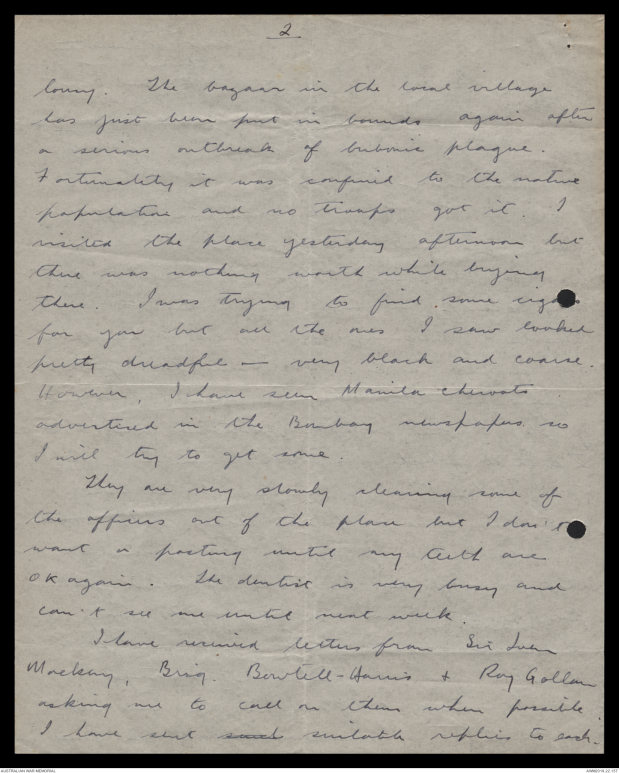 2
lousy. The bazaar in the local village
has just been put in bounds again after
a serious outbreak of bubonic plague.
Fortunately it was confined to the native
population and no troops got it. I
visited the place yesterday afternoon but
there was nothing worth while buying
there. I was trying to find some
for you but all the ones I saw looked
pretty dreadful — very black and coarse.
However, I have seen Manila cheroots
advertised in the Bombay newspapers so
I will try to get some.
They are very slowly clearing some of
the officers out of the place but I don't
want a posting until my teeth are
OK again. The dentist is very busy and
can't see me until next week.
I have received letters from Sir Iven
Mackay, Brig. Bowtell-Harris & Roy Gollan
asking me to call on them when possible.
I have sent such suitable replies to each.
AUSTRALIAN WAR MEMORIAL